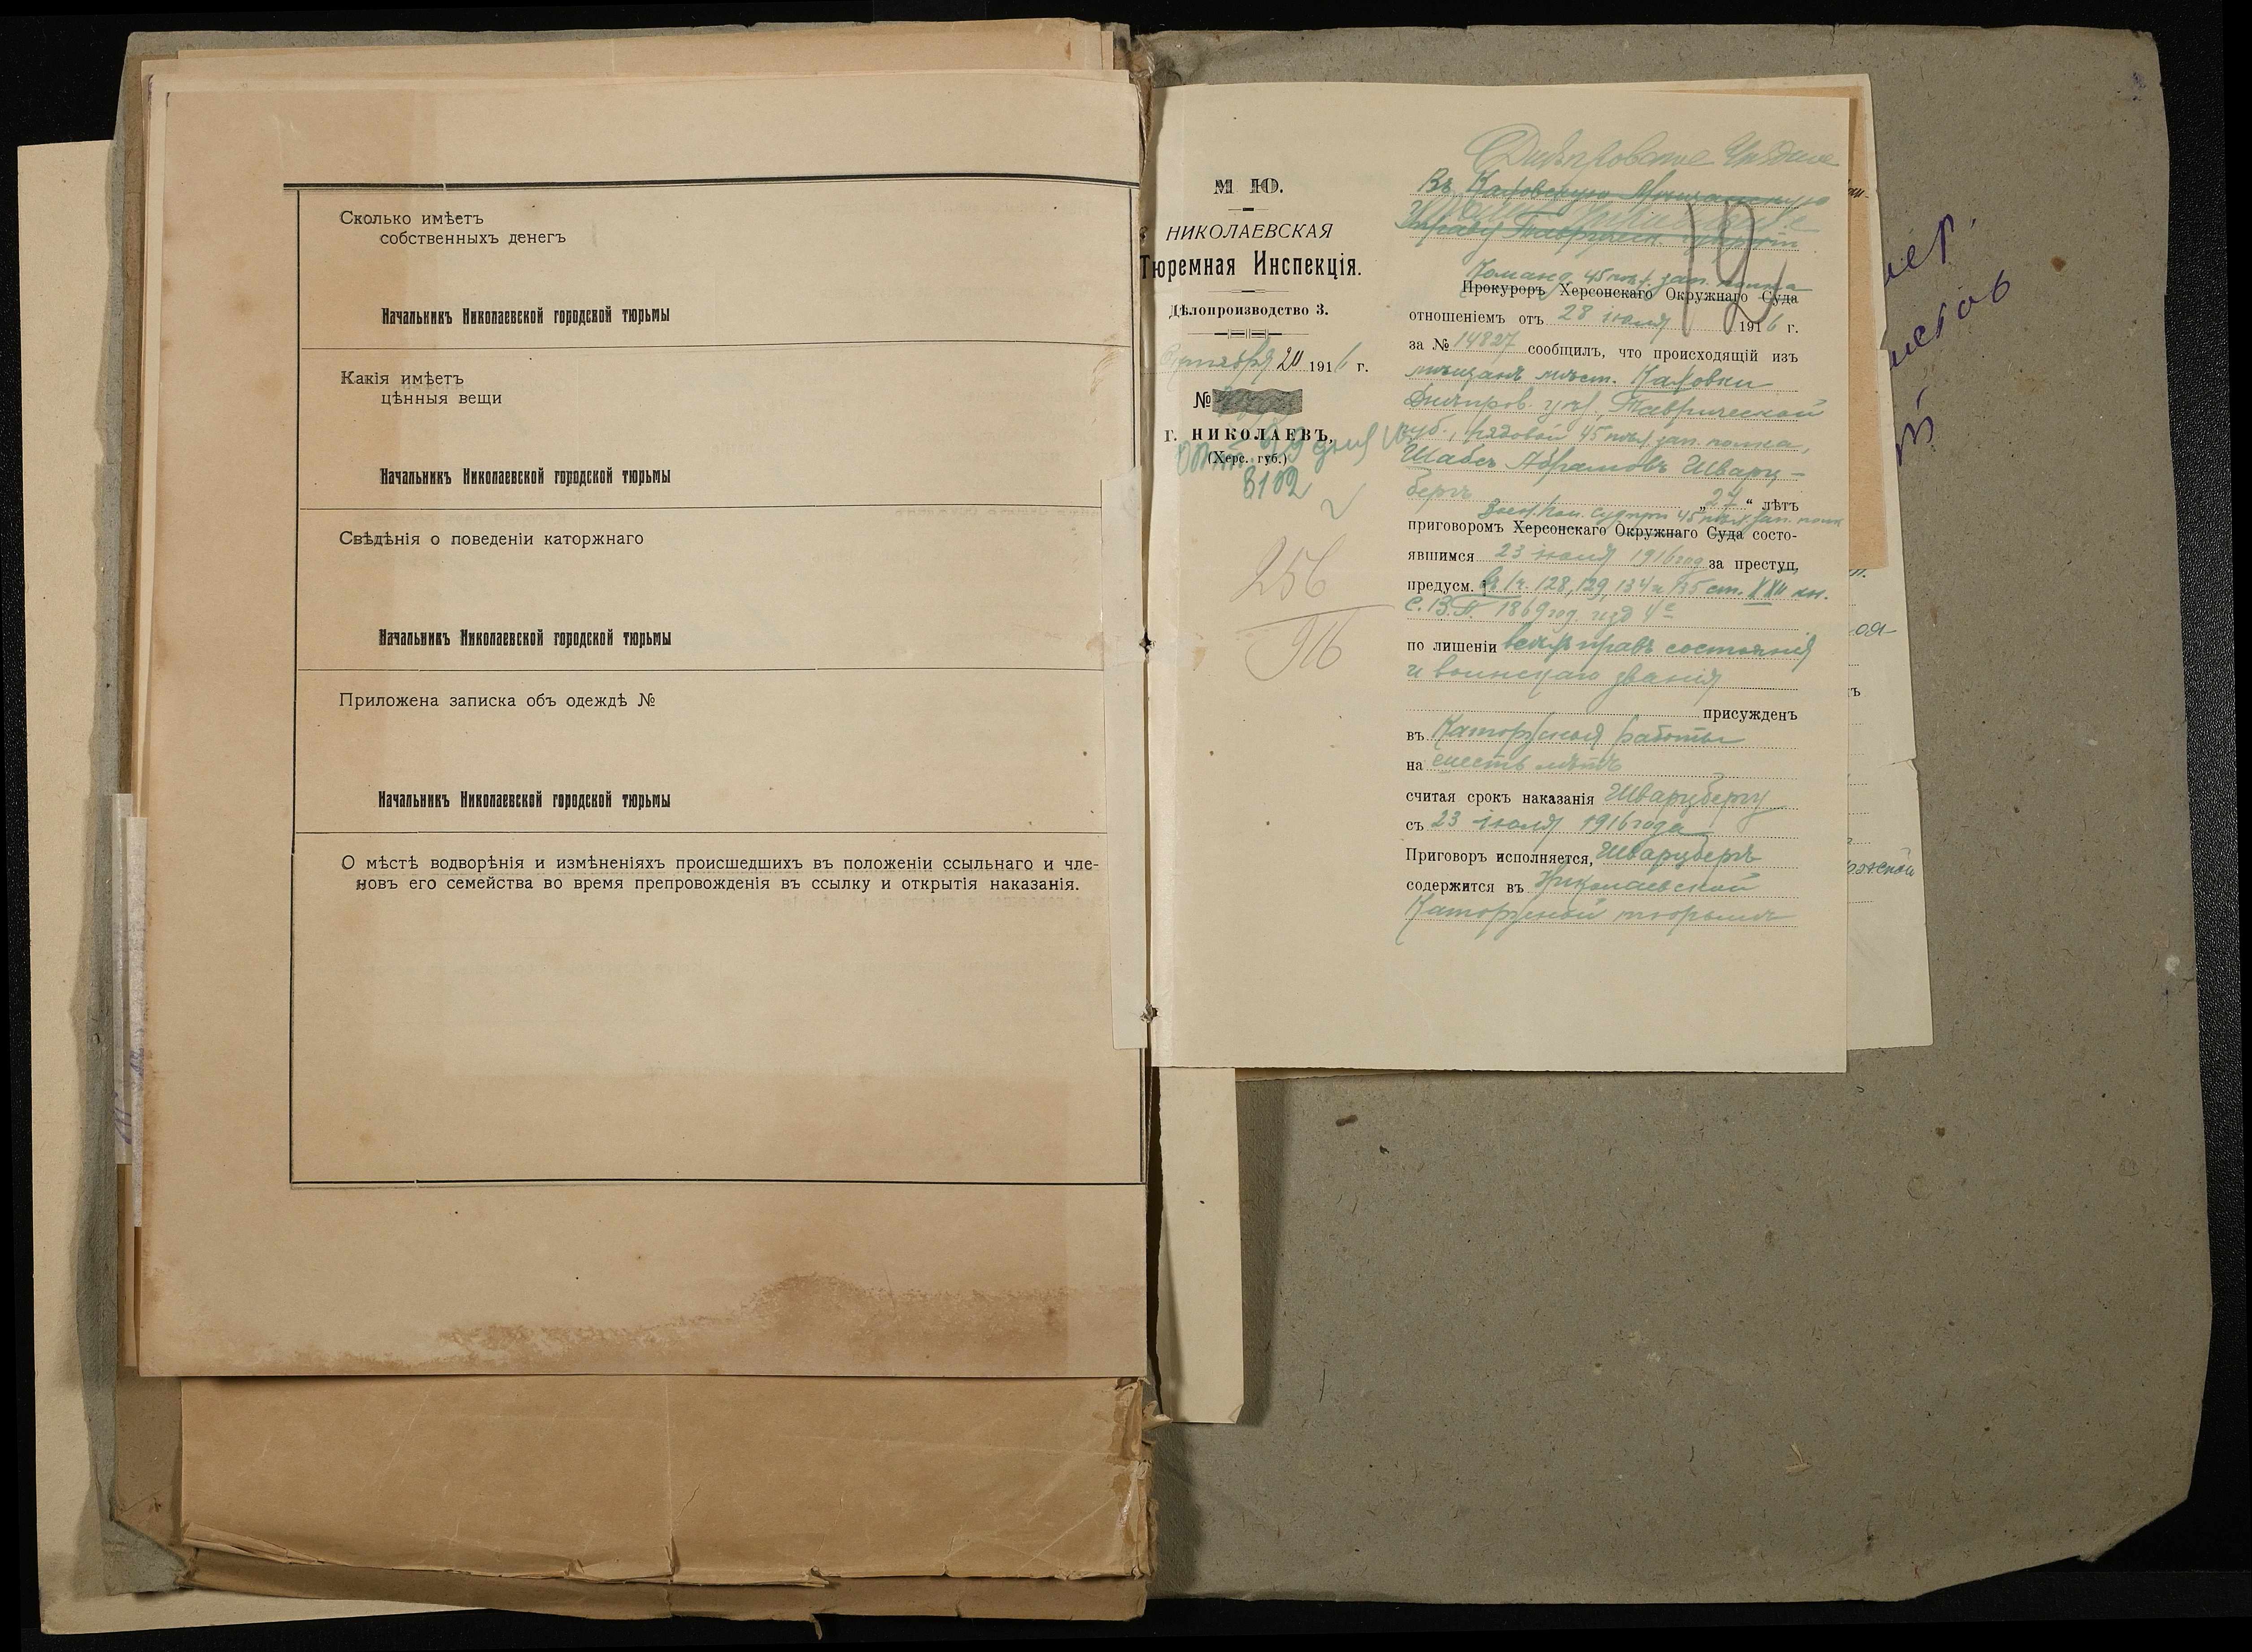 Сколько имѣетъ
собственныхъ денегъ
Начальникъ Николаевской городской тюрьмы
Какія имѣетъ
цѣнныя вещи
Начальникъ Николаевской городской тюрьмы
Свѣдѣнія о поведеніи каторжнаго
Начальникъ Николаевской городской тюрьмы
Приложена записка объ одеждѣ №
Начальникъ Николаевской городской тюрьмы
О мѣстѣ водворѣнія и измѣненіяхъ происшедшихъ въ положеніи ссыльнаго и чле-
новъ его семейства во время препровожденія въ ссылку и открытія наказанія.
М Ю.
НИКОЛАЕВСКАЯ
Тюремная Инспекція.
Дѣлопроизводство 3.
20 1916 г.
№
г. НИКОЛАЕВЪ,
(Херс. губ.)
3102
256
916
Въ Каховскую Мѣщанскую
Управу
12
Команд. 45 пѣх. зап. полка
Прокуроръ Херсонскаго Окружнаго Суда
отношеніемъ отъ 28 іюля 1916 г.
за № 14827 сообщилъ, что происходящій изъ
мѣщанъ мѣст. Каховки
Днѣпров. уѣз., Таврической
губ., рядовой 45 пѣх. зап. полка,
Шабсъ Абрамовъ Шварц-
бергъ „27“ лѣтъ
Воен. Пол. Суд при 45 пѣх. зап. полк
приговоромъ Херсонскаго Окружнаго Суда состо-
явшимся 23 іюля 1916 год за преступ.
предусм. въ 1 ч. 128, 129, 134 и 135 ст. XXII кн.
С. В. П. 1869 год. изд 4е
по лишеніи всѣхъ правъ состоянія
и воинскаго званія
присужденъ
въ Каторжныя работы
на шесть лѣтъ
считая срокъ наказанія Шварцбергу
съ 23 іюля 1916 года
Приговоръ исполняется, Шварцбергъ
содержится въ Николаевской
Каторжной тюрьмѣ